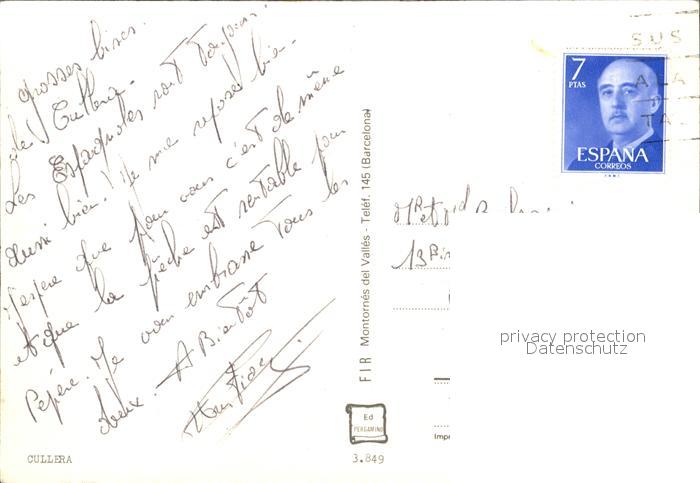 grosses bises.
de Cullera.
Les Espagnoles sont toujours
aussi bien. Je me repose bien.
J'espère que pour vous c'est de même
et que la pêche est rentable pour
Pépère. Je vous embrasse tous les
deux. A Bientôt
CULLERA
3.849
FIR Montornés del Vallés - Teléf. 145 (Barcelona)
Ed
PERGAMINO
7
PTAS
ESPAÑA
CORREOS
SUS
A LA
TA
Mr et
13 Bis
Impr
privacy protection
Datenschutz